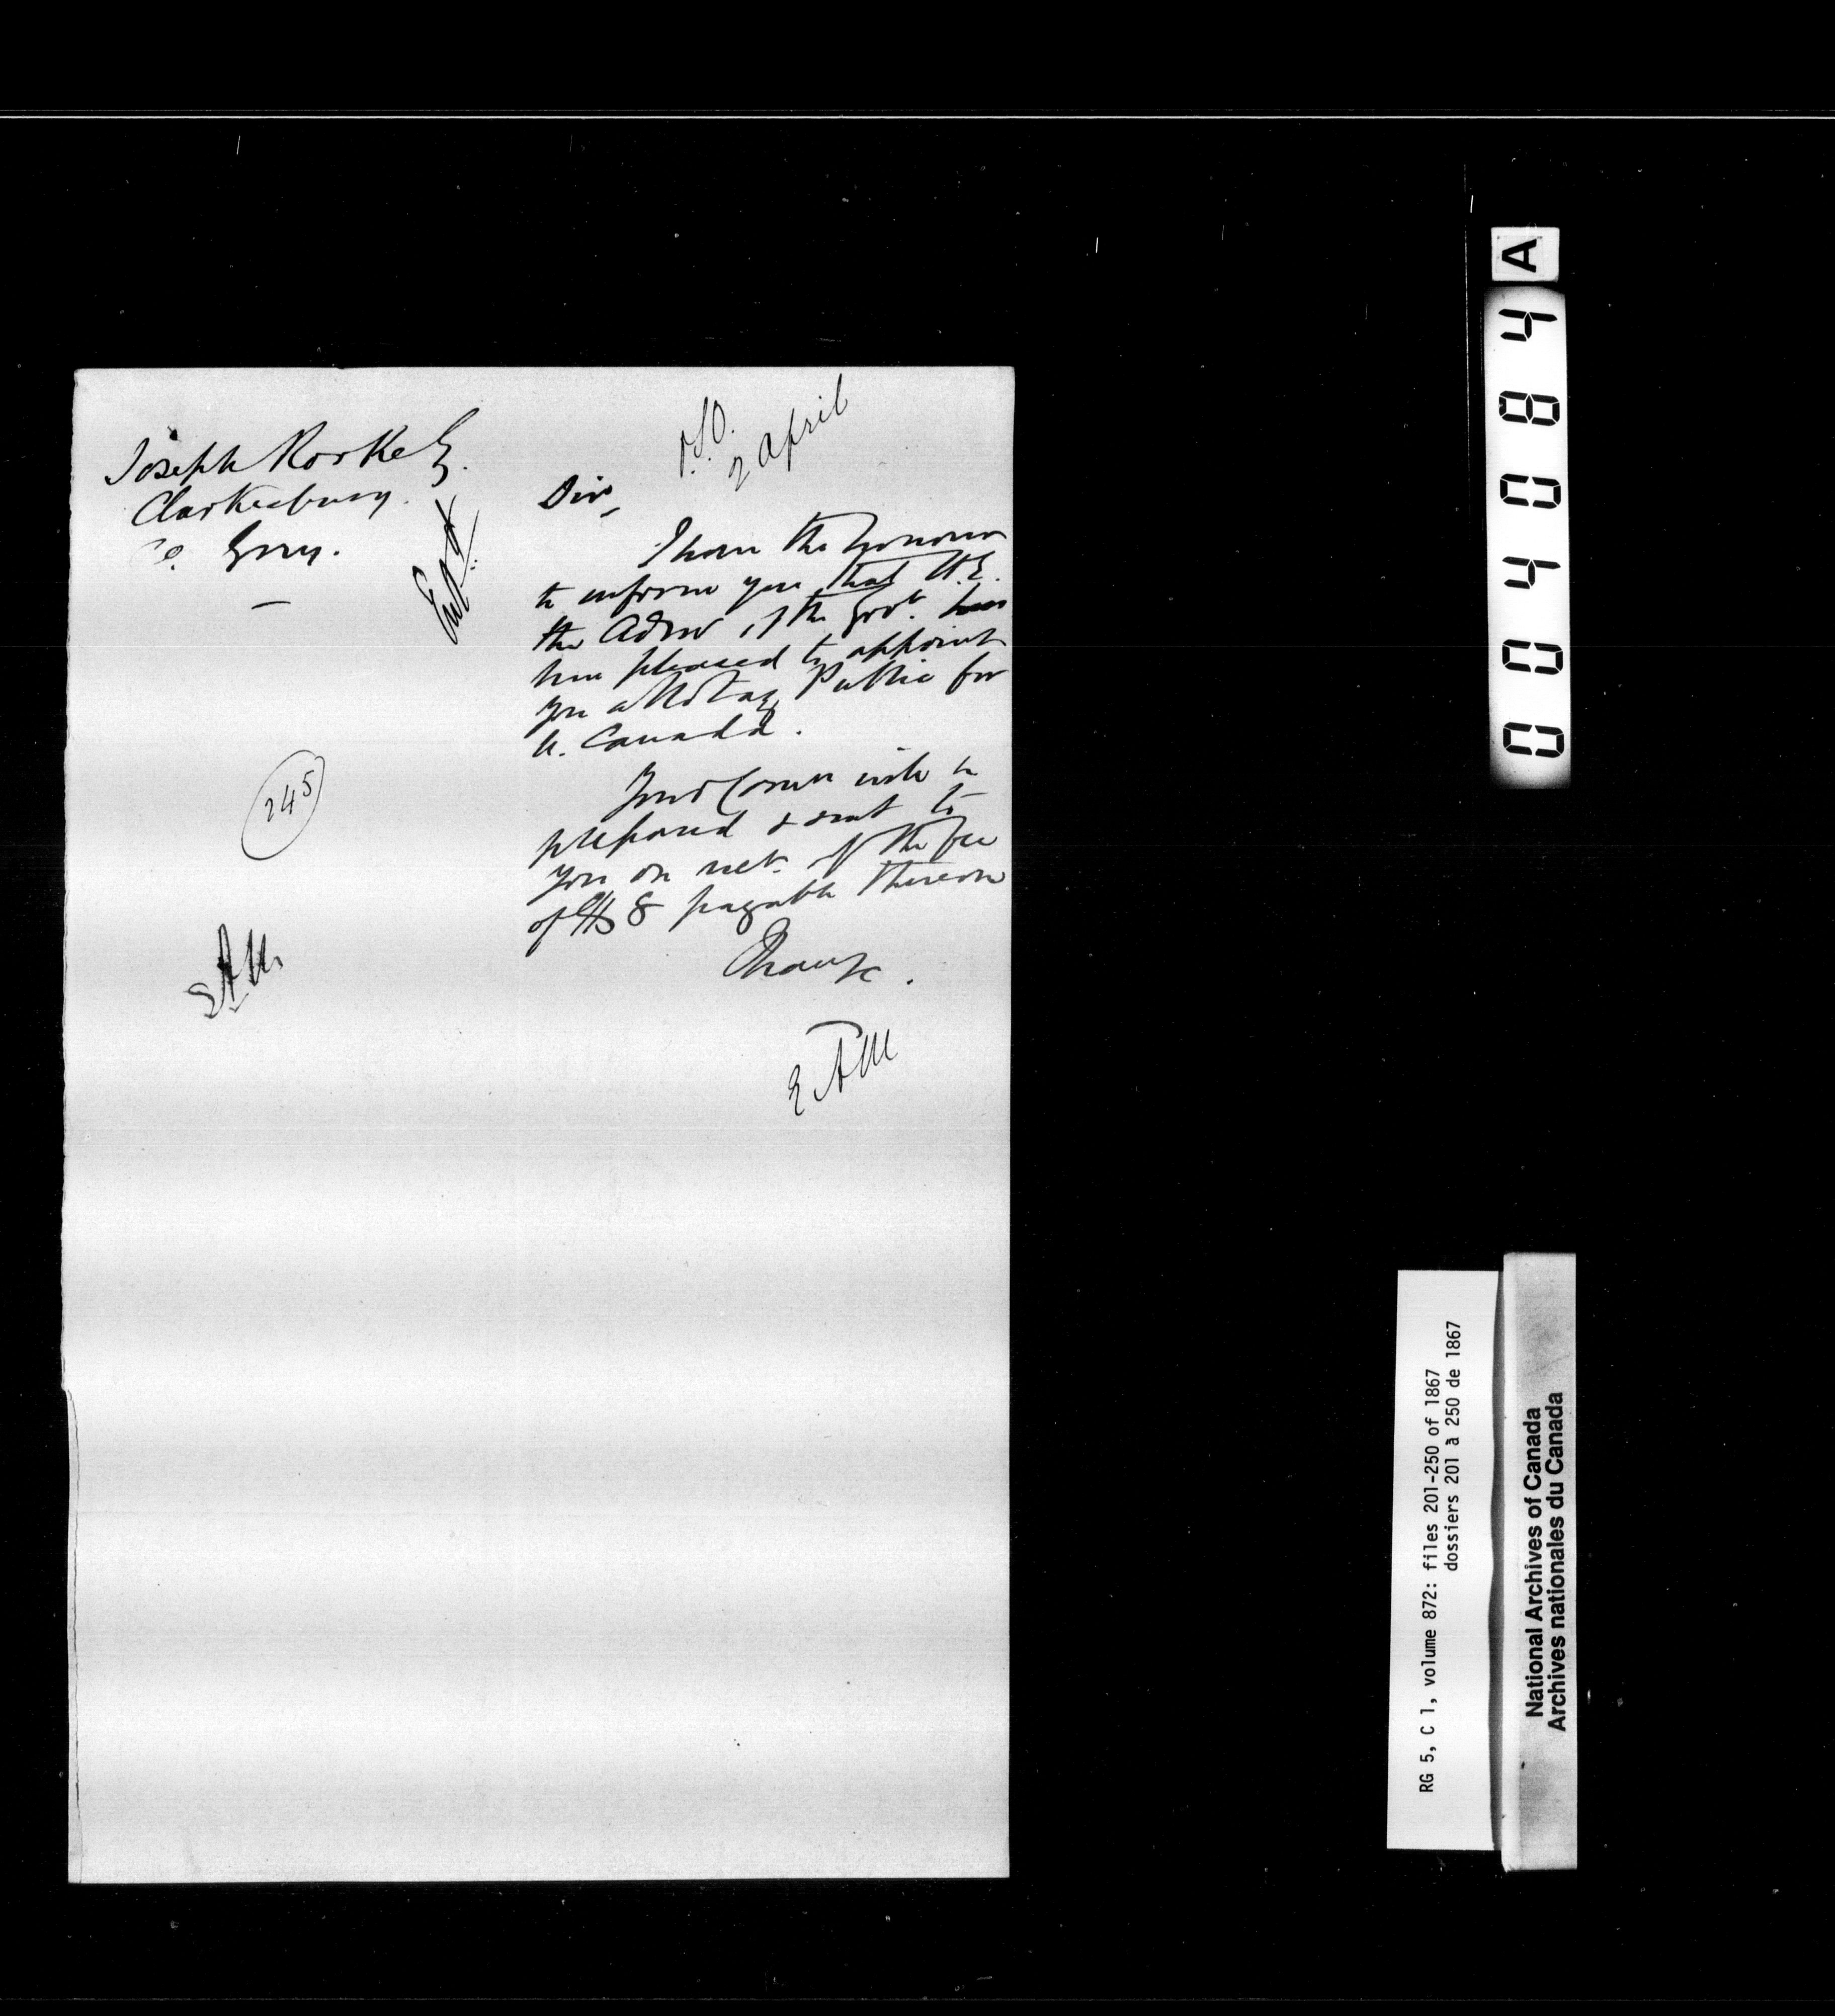 Joseph Rorke E.
Clarkesbury.
Co. Grey.
P.S.O.
2 April
Sir,
I have the honour
to inform you that H.E.
the Admr of the Govt. has
been pleased to appoint
you a Notary Public for
U. Canada.
Your Comn will be
prepared & sent to
you on rect. of the fee
of $8 payable thereon
245
EAM
EAM
A
040084
RG 5, C 1, volume 872: files 201-250 of 1867
dossiers 201 à 250 de 1867
National Archives of Canada
Archives nationales du Canada